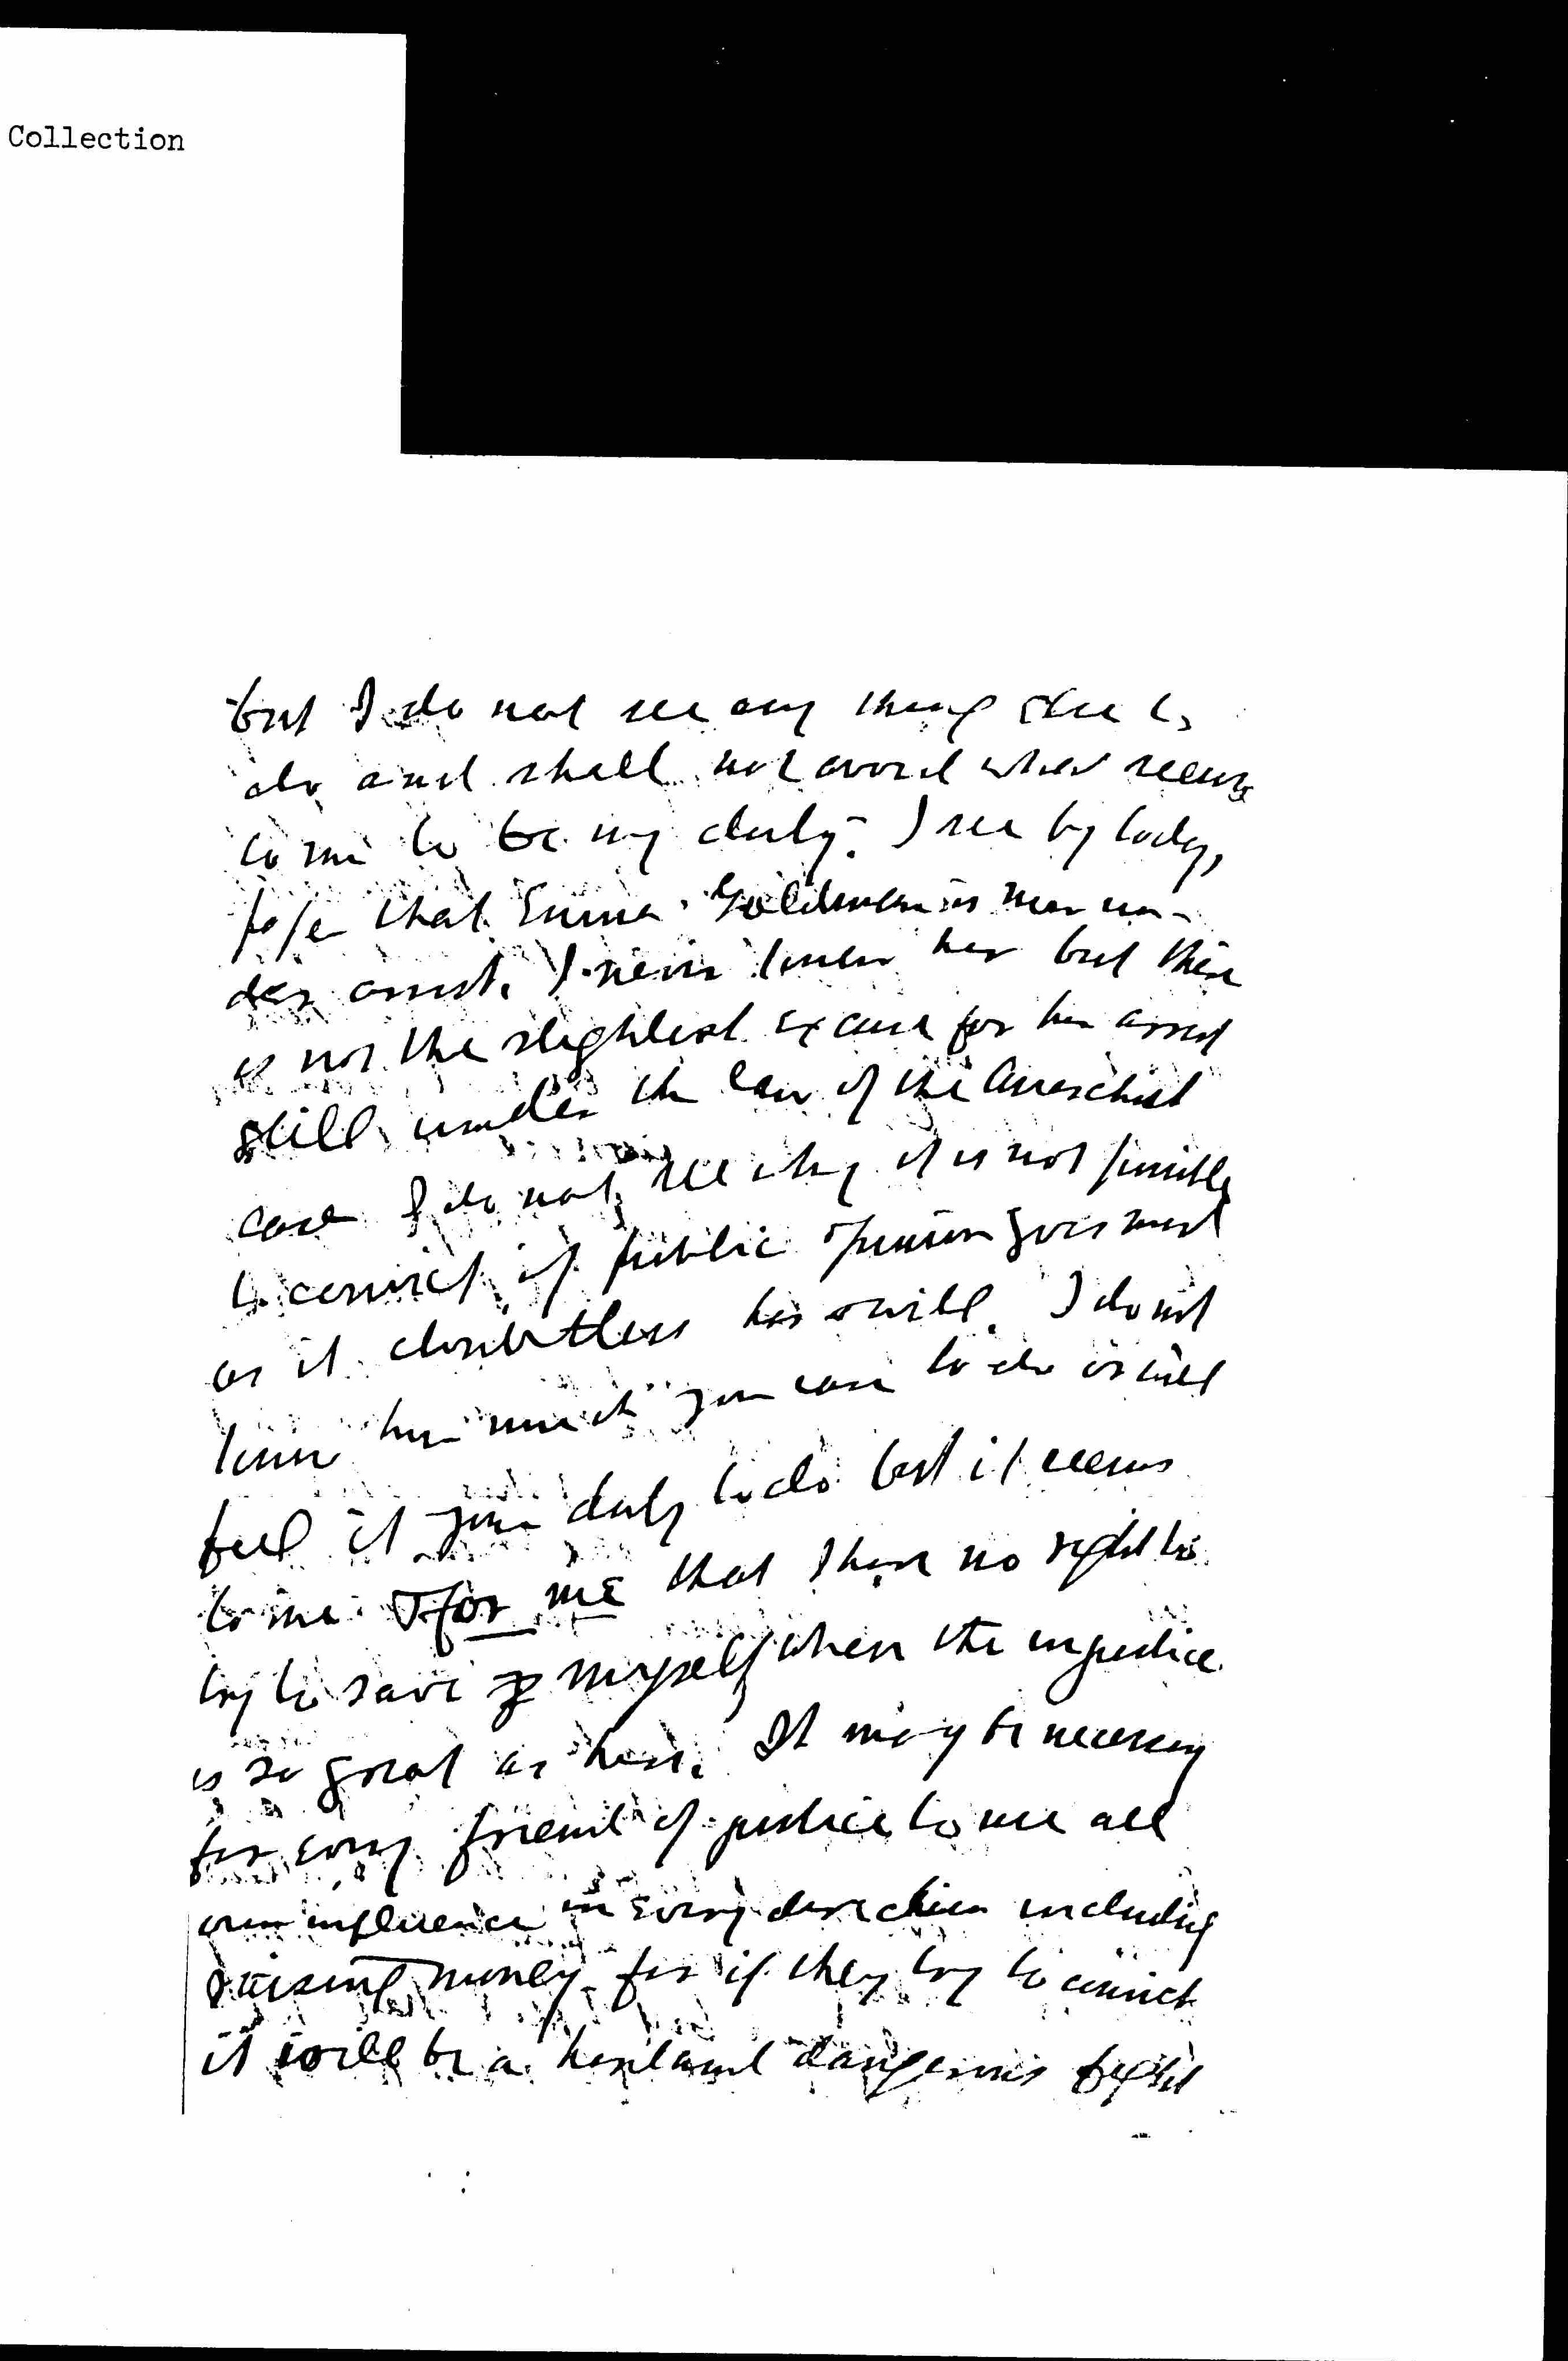 Collection
but I do not see any thing else to
do and shall not avoid what seems
to me to be my duty. I see by todays
paper that Emma Goldman is now un-
der arrest. I never knew her but there
is not the slightest excuse for her arrest
still under the law of the Anarchist
case I do not see why it is not possible
to convict if public opinion goes mad
as it doubtless has & will. I do not
know how much you care to do or will
feel it your duty to do but it seems
to me for me that I have no right to
try to save myself when the injustice
is so great as here. It may be necessary
for every friend of justice to use all
our influence in every direction including
raising money for if they try to convict
it will be a hard and dangerous fight